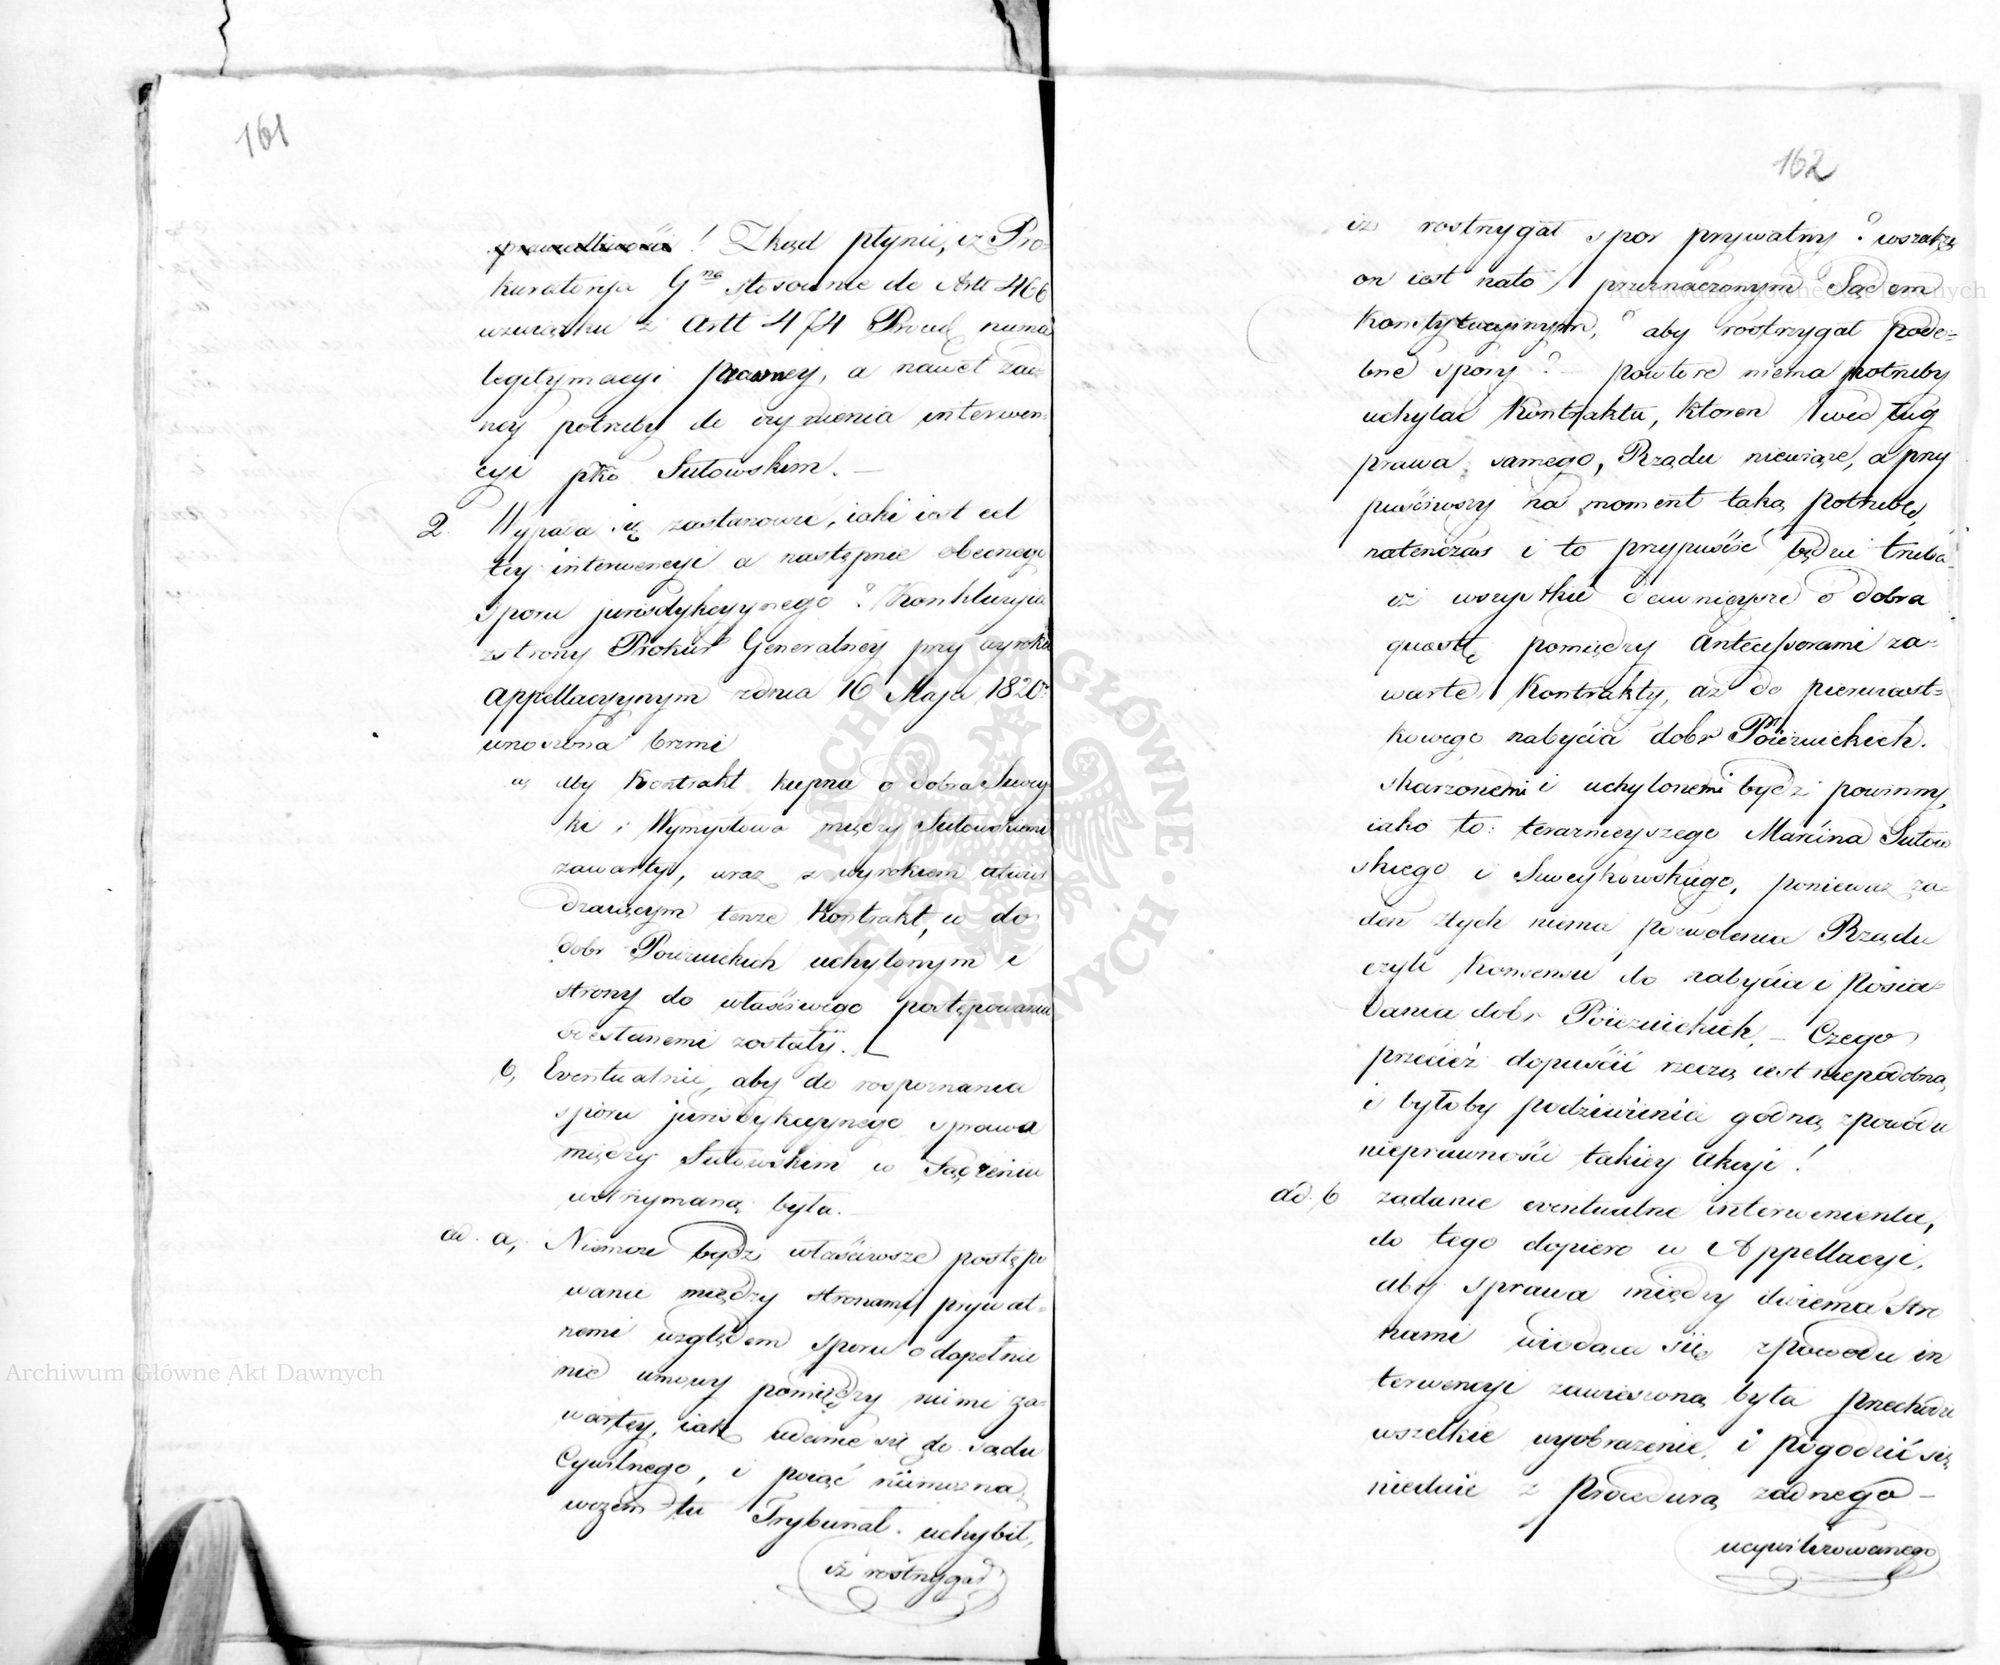 161
sprawiedliwości! Zkąd płynie, iż Pro-
kuratorya G^na stosownie do Artt 466
wzwiązku z Artt 474 Proced niema
legitymacyi prawney, a nawet żad-
ney potrzeby do czynienia interwen-
cyi pko Sutowskim. —
2. Wypada się zastanowić, iaki iest cel
tey interwencyi a następnie obecnego
sporu jurisdykcyynego? Konkluzyia
zstrony Prokur Generalney przy wyroku
appellacyynym zdnia 16 Maja 1820r
wnoszona brzmi
a, aby Kontrakt kupna o dobra Swey
ki i Wymysłowo między Sutowskiemi
zawarty, wraz z wyrokiem utwier
dzaiącym tenże Kontrakt, w do
dobr Poiezuickich uchylonym i
strony do właściwego postępowania
odesłanemi zostały. —
b, Eventualnie, aby do rozpoznania
sporu jurisdykcyynego sprawa
między Sutowskim w Sądzeniu
wstrzymaną była. —
ad. a, Niemoże bydź właściwsze postępo
wanie między stronami prywat-
nemi względem sporu o dopełnie
nie umowy pomiędzy niemi za-
wartey, iak udanie się do sądu
Cywilnego, i poiąć niemożna,
wczem tu Trybunał uchybił,
iż rostrzygał
162
iż rostrzygał spor prywatny? wszakże
on iest nato przeznaczonym Sądem
Konstytucyinym, aby rostrzygał podo-
bne spory? — powtore niema potrzeby
uchylać Kontraktu, ktoren według
prawa samego, Rządu niewiąże, a przy
puściwszy na moment taką potrzebę
natenczas i to przypuścić będzie trzeba
iż wszystkie dawnieysze o dobra
quaestę pomiędzy Antecessorami za-
warte Kontrakty, aż do pierwiast-
kowego nabycia dobr Poiezuickich.
skarżonemi i uchylonemi bydź powinny,
iako to: teraznieyszego Marcina Sutow
skiego i Sweykowskiego, ponieważ ża-
den ztych niema pozwolenia Rządu
czyli Konsensu do nabycia i Posia-
dania dobr Poiezuickich, — Czego
przecież dopuścić rzeczą iest niepodobną,
i byłoby podziwienia godną zpowodu
nieprawności takiey akcyi!
ad. b żądanie eventualne interwenienta,
do tego dopiero w Appellacyi,
aby sprawa między dwiema stro
nami wiodąca się zpowodu in
terwencyi zawieszoną była przechodzi
wszelkie wyobrażenie, i pogodzić się
niedaie z Procedurą żadnego —
ucywilizowanego
Archiwum Główne Akt Dawnych
Archiwum Główne Akt Dawnych
ARCHIWUM GŁÓWNE AKT DAWNYCH